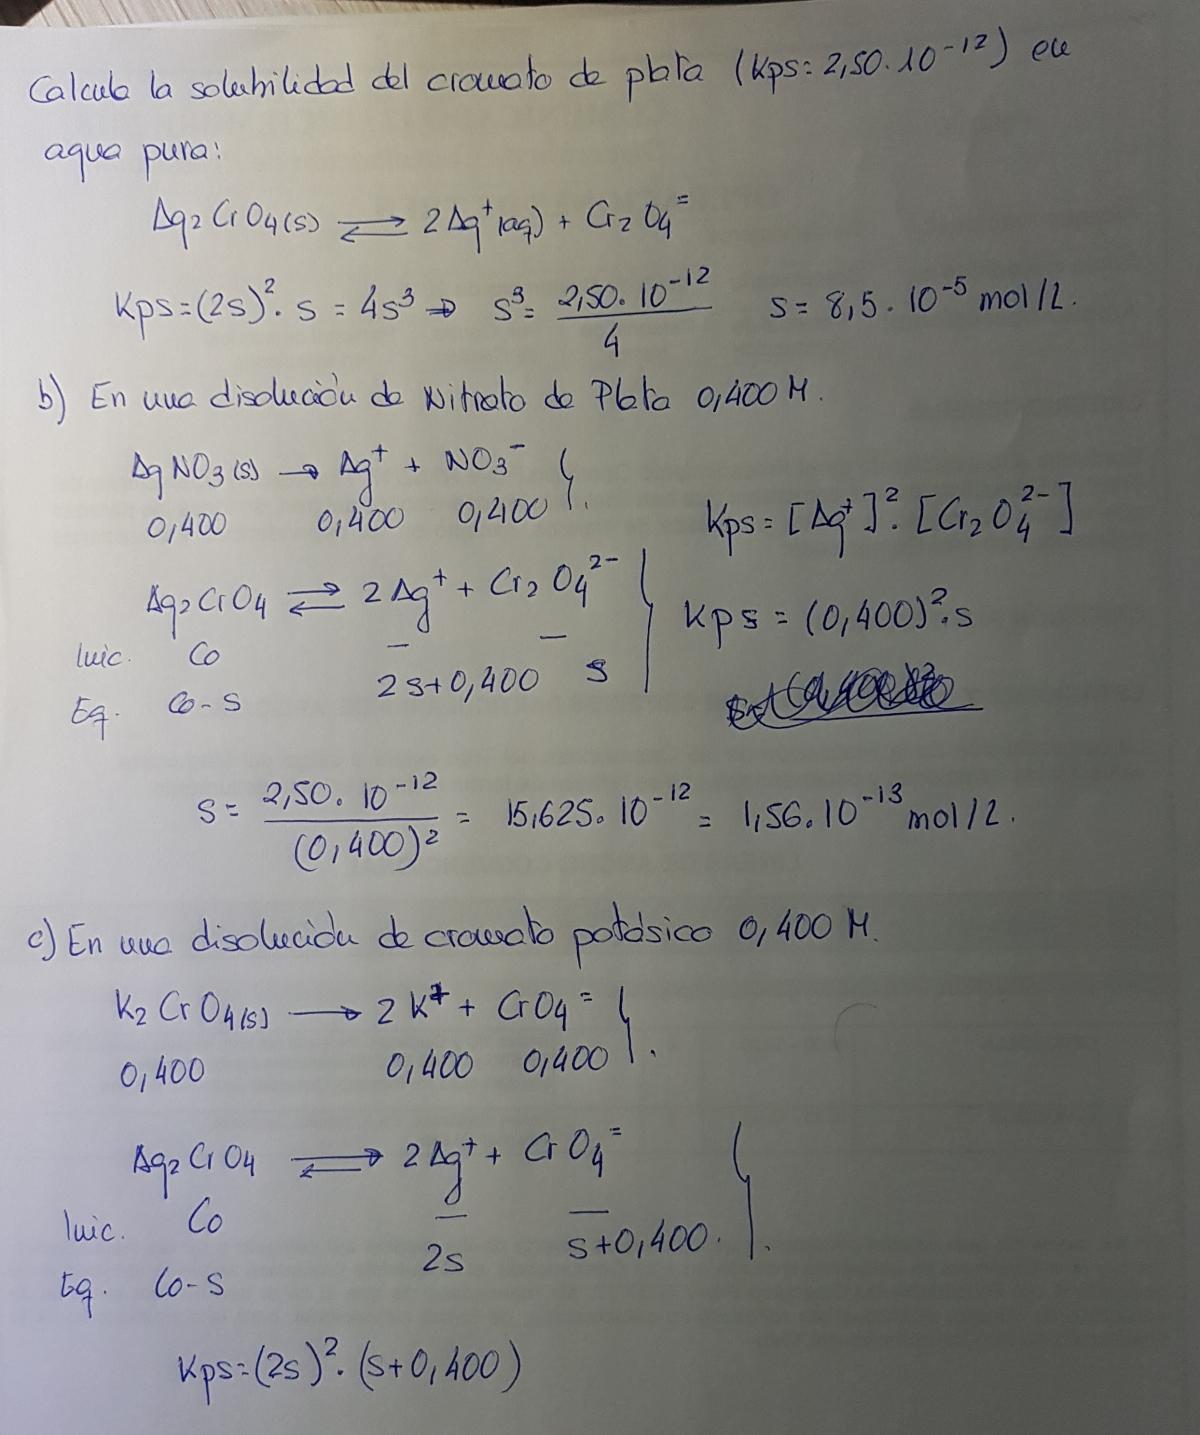 Calcula la solubilidad del cromato de plata (Kps: 2,50·10⁻¹²) en
agua pura:
Ag₂CrO₄(s) ⇌ 2Ag⁺(aq) + Cr₂O₄⁼
Kps=(2s)²·s = 4s³ ⇒ s³= 2,50·10⁻¹²/4 s= 8,5·10⁻⁵ mol/L.
b) En una disolución de Nitrato de Plata 0,400 M.
AgNO₃(s) → Ag⁺ + NO₃⁻ }
0,400 0,400 0,400
Kps=[Ag⁺]²·[Cr₂O₄²⁻]
Ag₂CrO₄ ⇌ 2Ag⁺ + Cr₂O₄²⁻ }
Inic. Co — —
Eq. Co-s 2s+0,400 s
Kps = (0,400)²·s
s= 2,50·10⁻¹²/(0,400)² = 15,625·10⁻¹² = 1,56·10⁻¹³ mol/L.
c) En una disolución de cromato potásico 0,400 M.
K₂CrO₄(s) → 2K⁺ + CrO₄⁼ }
0,400 0,400 0,400
Ag₂CrO₄ ⇌ 2Ag⁺ + CrO₄⁼ }
Inic. Co — —
Eq. Co-s 2s s+0,400.
Kps=(2s)²·(s+0,400)